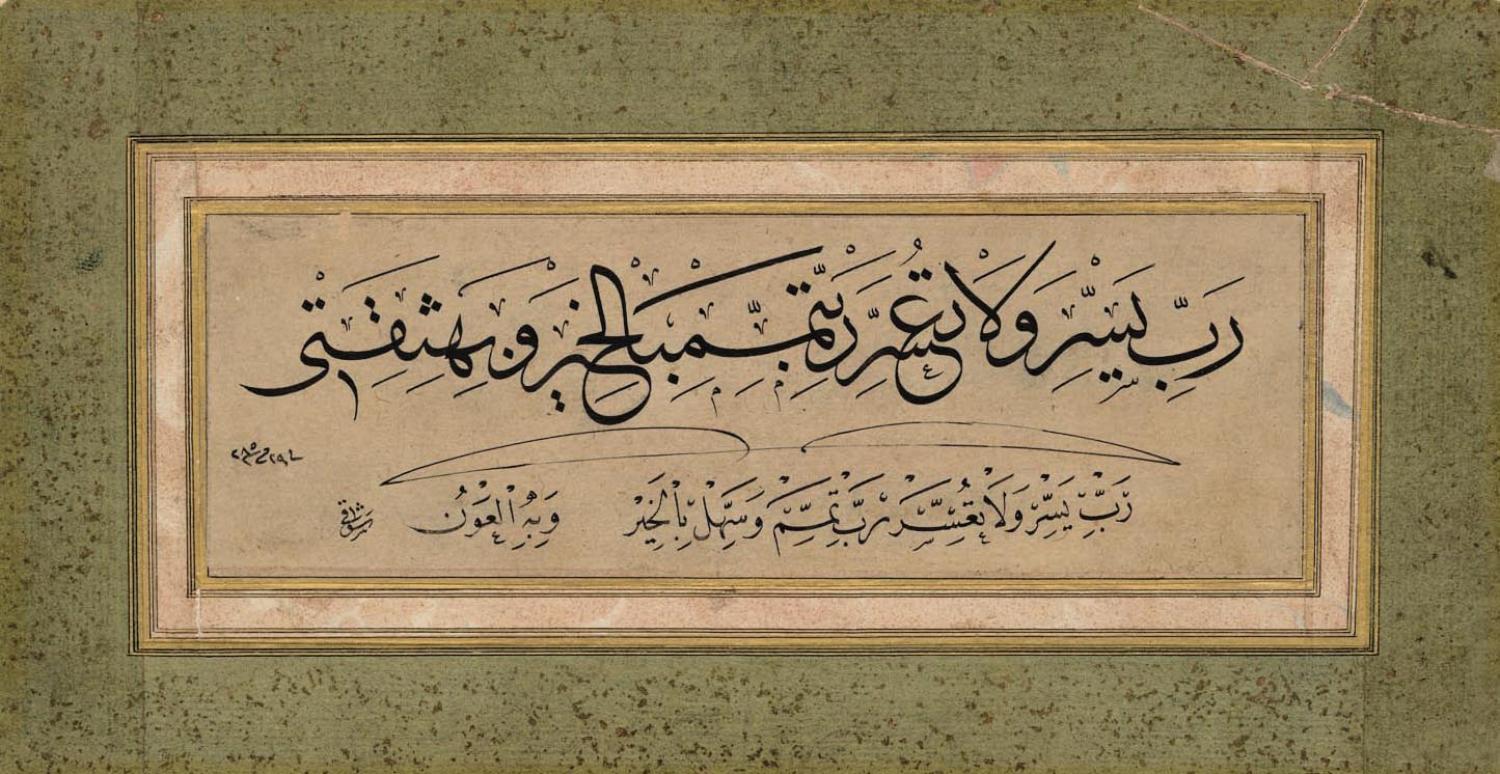 رَبِّ يَسِّرْ وَلَا تُعَسِّرْ رَبِّ تَمِّمْ بِالْخَيْرِ وَبِهِ ثِقَتِي
رَبِّ يَسِّرْ وَلَا تُعَسِّرْ رَبِّ تَمِّمْ وَسَهِّلْ بِالْخَيْرِ وَبِهِ الْعَوْنُ